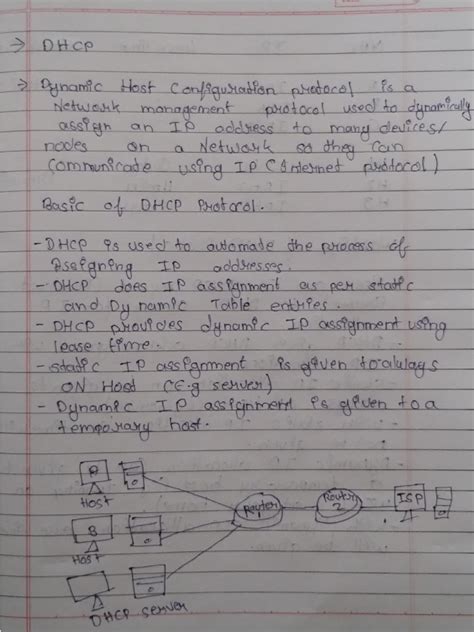 → DHCP
→ Dynamic Host Configuration protocol is a
Network management protocol used to dynamically
assign an IP address to many devices/
nodes on a Network so they can
communicate using IP (Internet protocol)
Basic of DHCP Protocol.
- DHCP is used to automate the process of
assigning IP addresses.
- DHCP does IP assignment as per static
and Dynamic Table entries.
- DHCP provides dynamic IP assignment using
lease time.
- static IP assignment is given to always
ON Host (E.g server)
- Dynamic IP assignment is given to a
temporary host.
A
Host
Router
1
Router
2
ISP
B
Host
DHCP server